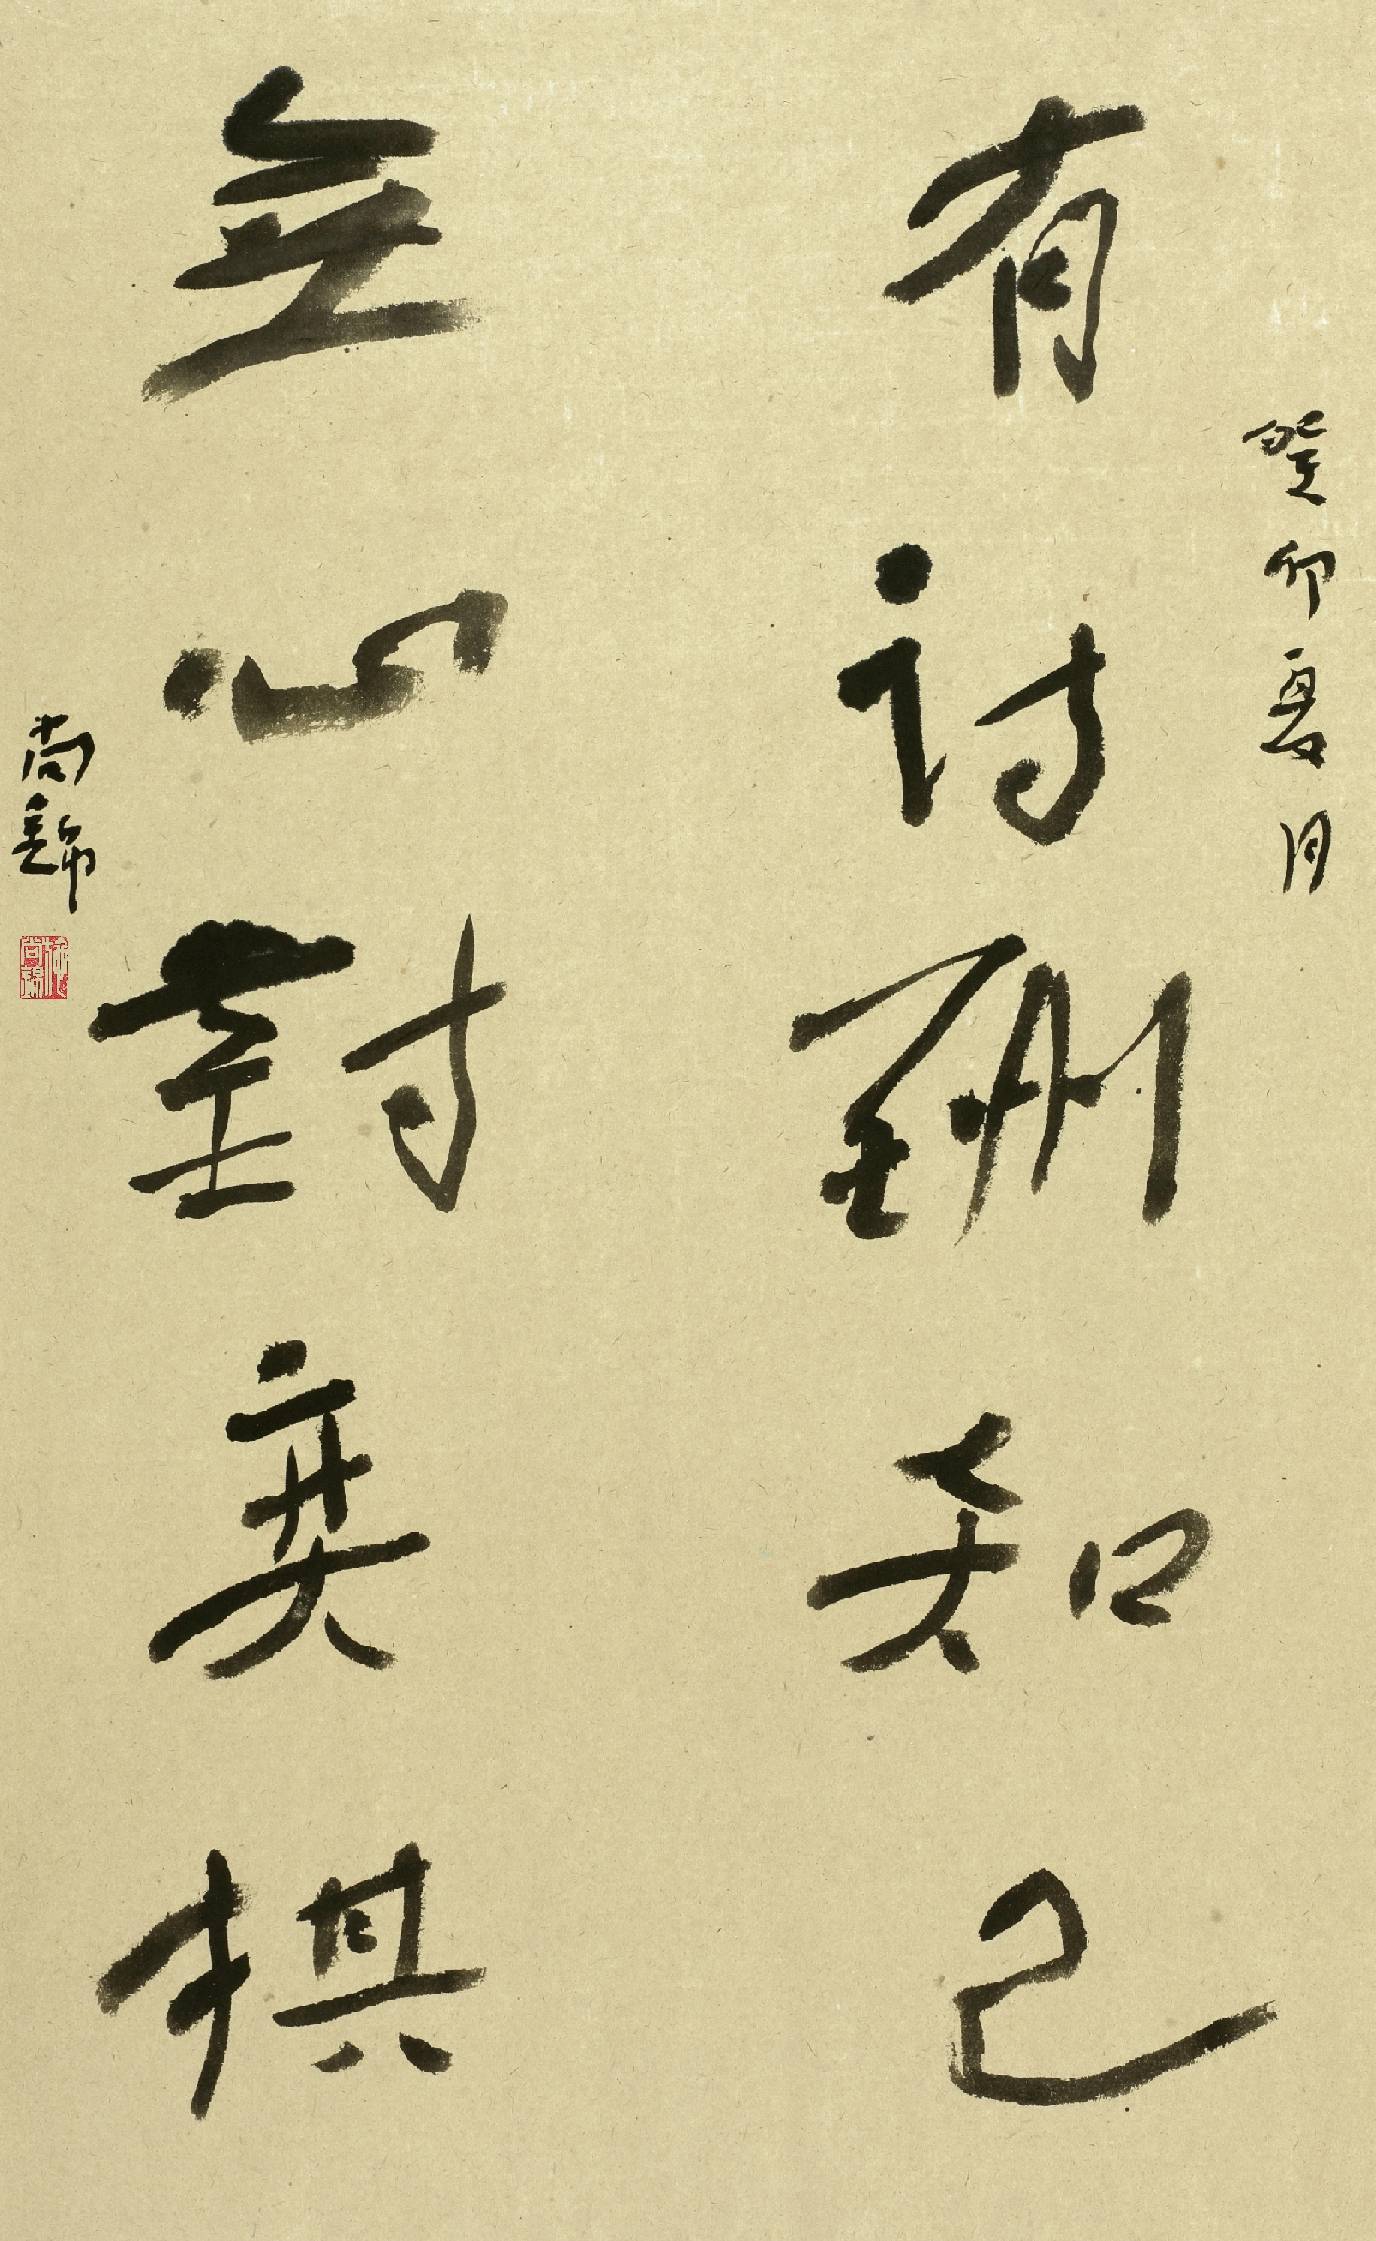 癸卯夏月
有詩酬知己
無心對奕棋
尚錦